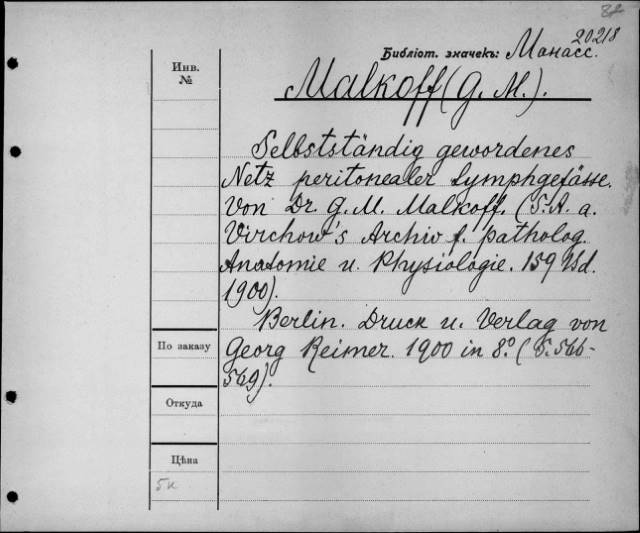 20218
Библіот. значекъ: Манасс.
Инв.
№
Malkoff (G. M.).
Selbstständig gewordenes
Netz peritonealer Lymphgefässe.
Von Dr. G. M. Malkoff. (S. A. a.
Virchow's Archiv f. patholog.
Anatomie u. Physiologie. 159 Bd.
1900).
Berlin. Druck u. Verlag von
По заказу
Georg Reimer. 1900 in 8.° (S. 566-
569).
Откуда
Цѣна
5к